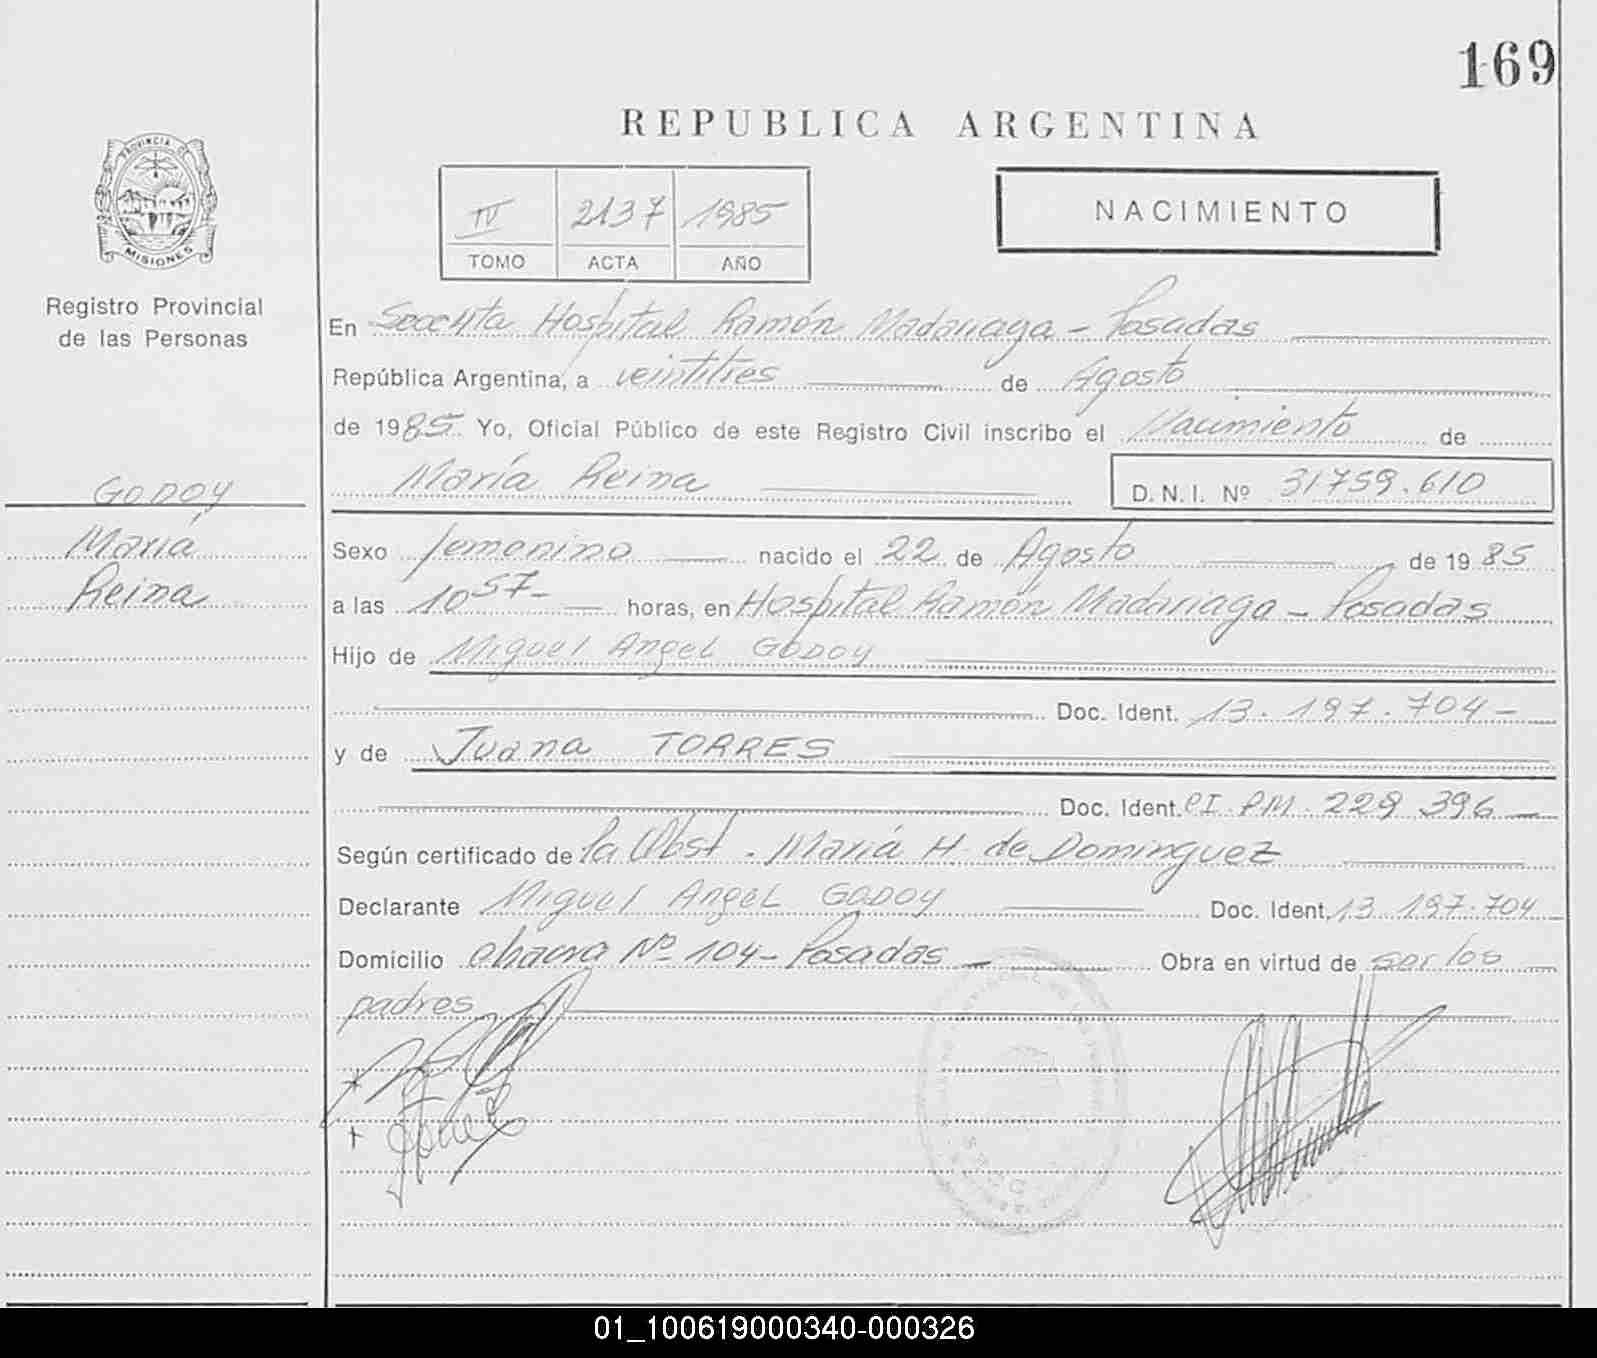 169
REPUBLICA ARGENTINA
PROVINCIA DE
MISIONES
Registro Provincial
de las Personas
IV 2137 1985
TOMO ACTA AÑO
NACIMIENTO
En Hospital Ramón Madariaga - Posadas
República Argentina, a veintitres de Agosto
de 1985 Yo, Oficial Público de este Registro Civil inscribo el Nacimiento de
María Reina D.N.I. Nº 31759.610
GODOY
María
Reina
Sexo femenino nacido el 22 de Agosto de 1985
a las 10 57- horas, en Hospital Ramón Madariaga - Posadas
Hijo de Miguel Angel GODOY
Doc. Ident. 13.197.704-
y de Juana TORRES
Doc. Ident. CI. PM. 229 396-
Según certificado de la Obst. María H. de Dominguez
Declarante Miguel Angel GODOY Doc. Ident. 13.197.704
Domicilio chacra Nº 104- Posadas - Obra en virtud de ser los
padres
01_100619000340-000326